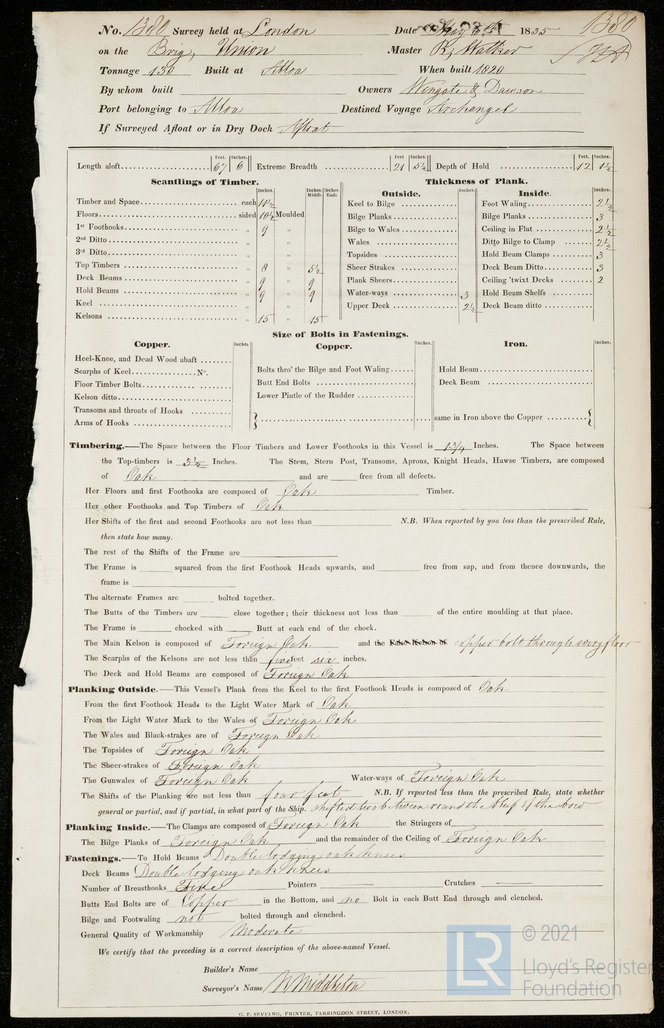 No. 1380 Survey held at London Date May 1835 1380
on the Brig, Union Master R. Walker
Tonnage 130 Built at Alloa When built 1820
By whom built Owners Wingate & Dawson
Port belonging to Alloa Destined Voyage Archangel
If Surveyed Afloat or in Dry Dock Afloat
Length aloft Feet 67 Inches 6 Extreme Breadth Feet 21 Inches 5½ Depth of Hold Feet 12 Inches 1½
Scantlings of Timber. Thickness of Plank.
Inches. Inches Middle Inches Ends Outside. Inside.
Timber and Space each Keel to Bilge Foot Waling 2½
Floors sided 10½ Moulded Bilge Planks Bilge Planks 3
1st Foothooks 9 Bilge to Wales Ceiling in Flat 2½
2nd Ditto Wales Ditto Bilge to Clamp 2½
3rd Ditto Topsides Hold Beam Clamps 3
Top Timbers 8 5½ Sheer Strakes Deck Beam Ditto 3
Deck Beams 9 9 Plank Sheers Ceiling 'twixt Decks 2
Hold Beams 9 9 Water-ways 3 Hold Beam Shelfs
Keel Upper Deck 2½ Deck Beam ditto
Kelsons 15 15
Size of Bolts in Fastenings.
Copper. Copper. Iron.
Heel-Knee, and Dead Wood abaft
Scarphs of Keel No. Bolts thro' the Bilge and Foot Waling Hold Beam
Floor Timber Bolts Butt End Bolts Deck Beam
Kelson ditto Lower Pintle of the Rudder
Transoms and throats of Hooks
Arms of Hooks same in Iron above the Copper
Timbering.—The Space between the Floor Timbers and Lower Foothooks in this Vessel is 1¾ Inches. The Space between
the Top-timbers is 3½ Inches. The Stem, Stern Post, Transoms, Aprons, Knight Heads, Hawse Timbers, are composed
of Oak and are free from all defects.
Her Floors and first Foothooks are composed of Oak Timber.
Her other Foothooks and Top Timbers of Oak
Her Shifts of the first and second Foothooks are not less than N.B. When reported by you less than the prescribed Rule,
then state how many.
The rest of the Shifts of the Frame are
The Frame is squared from the first Foothook Heads upwards, and free from sap, and from thence downwards, the
frame is
The alternate Frames are bolted together.
The Butts of the Timbers are close together; their thickness not less than of the entire moulding at that place.
The Frame is chocked with Butt at each end of the chock.
The Main Kelson is composed of Foreign Oak and the False Kelson of Copper bolt through every floor
The Scarphs of the Kelsons are not less than five feet six inches.
The Deck and Hold Beams are composed of Foreign Oak
Planking Outside.—This Vessel's Plank from the Keel to the first Foothook Heads is composed of Oak
From the first Foothook Heads to the Light Water Mark of Oak
From the Light Water Mark to the Wales of Foreign Oak
The Wales and Black-strakes are of Foreign Oak
The Topsides of Foreign Oak
The Sheer-strakes of Foreign Oak
The Gunwales of Foreign Oak Water-ways of Foreign Oak
The Shifts of the Planking are not less than four feet N.B. If reported less than the prescribed Rule, state whether
general or partial, and if partial, in what part of the Ship. shifted two between round the bluff of the bow
Planking Inside.—The Clamps are composed of Foreign Oak the Stringers of
The Bilge Planks of Foreign Oak and the remainder of the Ceiling of Foreign Oak
Fastenings.—To Hold Beams Double lodging oak knees
Deck Beams Double lodging oak knees
Number of Breasthooks Five Pointers Crutches
Butts End Bolts are of Copper in the Bottom, and no Bolt in each Butt End through and clenched.
Bilge and Footwaling not bolted through and clenched.
General Quality of Workmanship Moderate
We certify that the preceding is a correct description of the above-named Vessel.
Builder's Name
Surveyor's Name N Middleton
G. F. SEYFANG, PRINTER, FARRINGDON STREET, LONDON.
LR © 2021
Lloyd's Register
Foundation